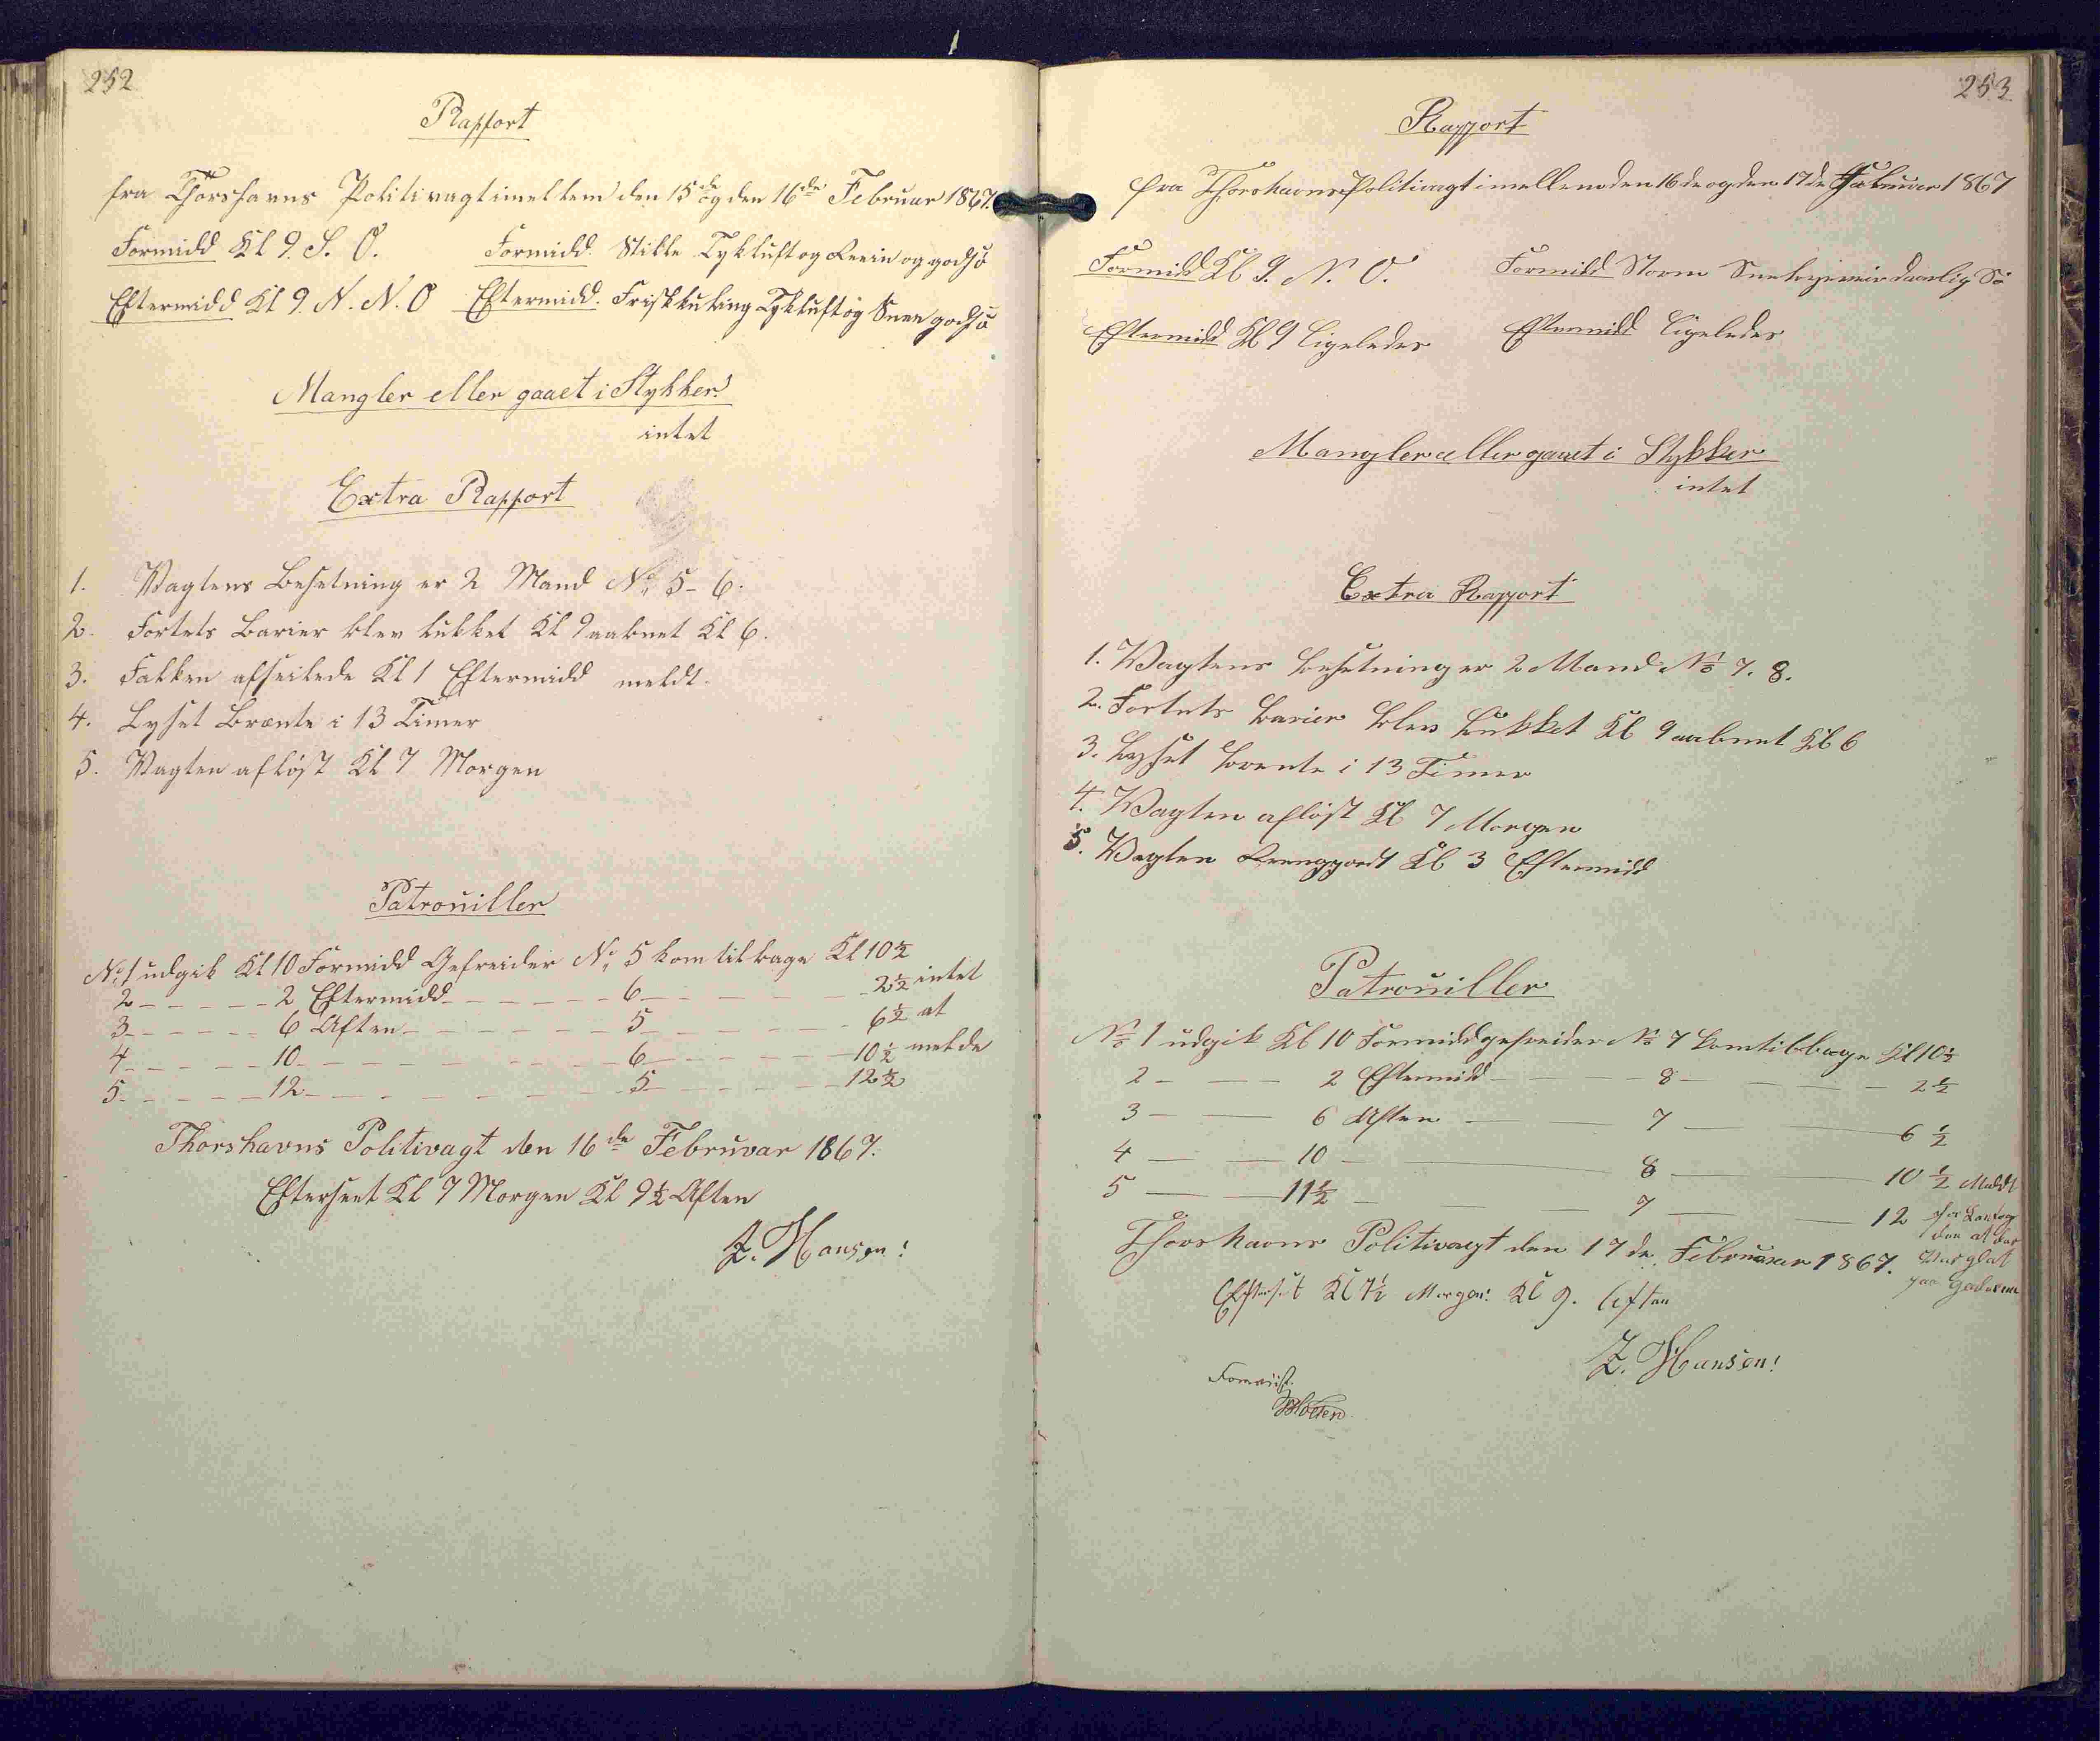 252
Rapport
fra Thorshavns Politivagt imellem den 15de og den 16de Februar 1867.
Formidd Kl 9. S. O. Formidd. Stille Tykluft og Reein og godsö
Eftermidd Kl 9. N. N. O Eftermidd. Friskkuling Tykluft og Snee godsö
Mangler eller gaaet i Stykker!
intet
Extra Rapport
1. Wagtens Besetning er 2 Mand No, 5-6.
2. Fortets Barier blev lukket Kl 9 aabnet Kl 6.
3. Falken afseilede Kl 1 Eftermidd meldt.
4. Lyset Brænte i 13 Timer
5. Wagten aflöst Kl 7 Morgen
Patrouiller
No, 1 udgik Kl 10 Formidd Gefreider No, 5 kom tilbage Kl 10 1/2
2 - - - - - 2 Eftermidd - - - - - - 6 - - - - - - 2 1/2 intet
3 - - - - - 6 Aften - - - - - - - 5 - - - - - - 6 1/2 at
4 - - - - - 10 - - - - - - - - - 6 - - - - - - 10 1/2 melde
5 - - - - - 12 - - - - - - - - - 5 - - - - - - 12 1/2
Thorshavns Politivagt den 16de Februar 1867.
Efterseet Kl 7 Morgen Kl 9 1/2 Aften
Z. Hansen!
253
Rapport
fra Thorshavns Politivagt imellem den 16de og den 17de Februar 1867
Formidd Kl 9. N. O. Formidd Storm daarlig Sö
Eftermidd Kl 9 ligeledes Eftermidd ligeledes
Mangler eller gaaet i Stykker
intet
Extra Rapport
1. Wagtens besetning er 2 Mand No 7. 8.
2. Fortets barier blev lukket Kl 9 aabnet Kl 6
3. Lyset brænte i 13 Timer
4. Wagten aflöst Kl 7 Morgen
5. Wagten Reenggordt Kl 3 Eftermidd
Patrouiller
No 1 udgik Kl 10 Formidd gefreider No 7 kom tilbage Kl 10 1/2
2 - — — 2 Eftermidd — — 8 — — — 2 1/2
3 — — 6 Aften — — 7 — — 6 1/2
4 — — 10 — — 8 — 10 1/2 Meldt
5 — — 11 1/2 — — — 7 — — 12 for
den at der
Thorshavns Politivagt den 17de Februar 1867. var glat
paa Gaderne
Efterset Kl 7 1/2 Morgen. Kl 9. Aften
Z. Hansen!
Foreviist.